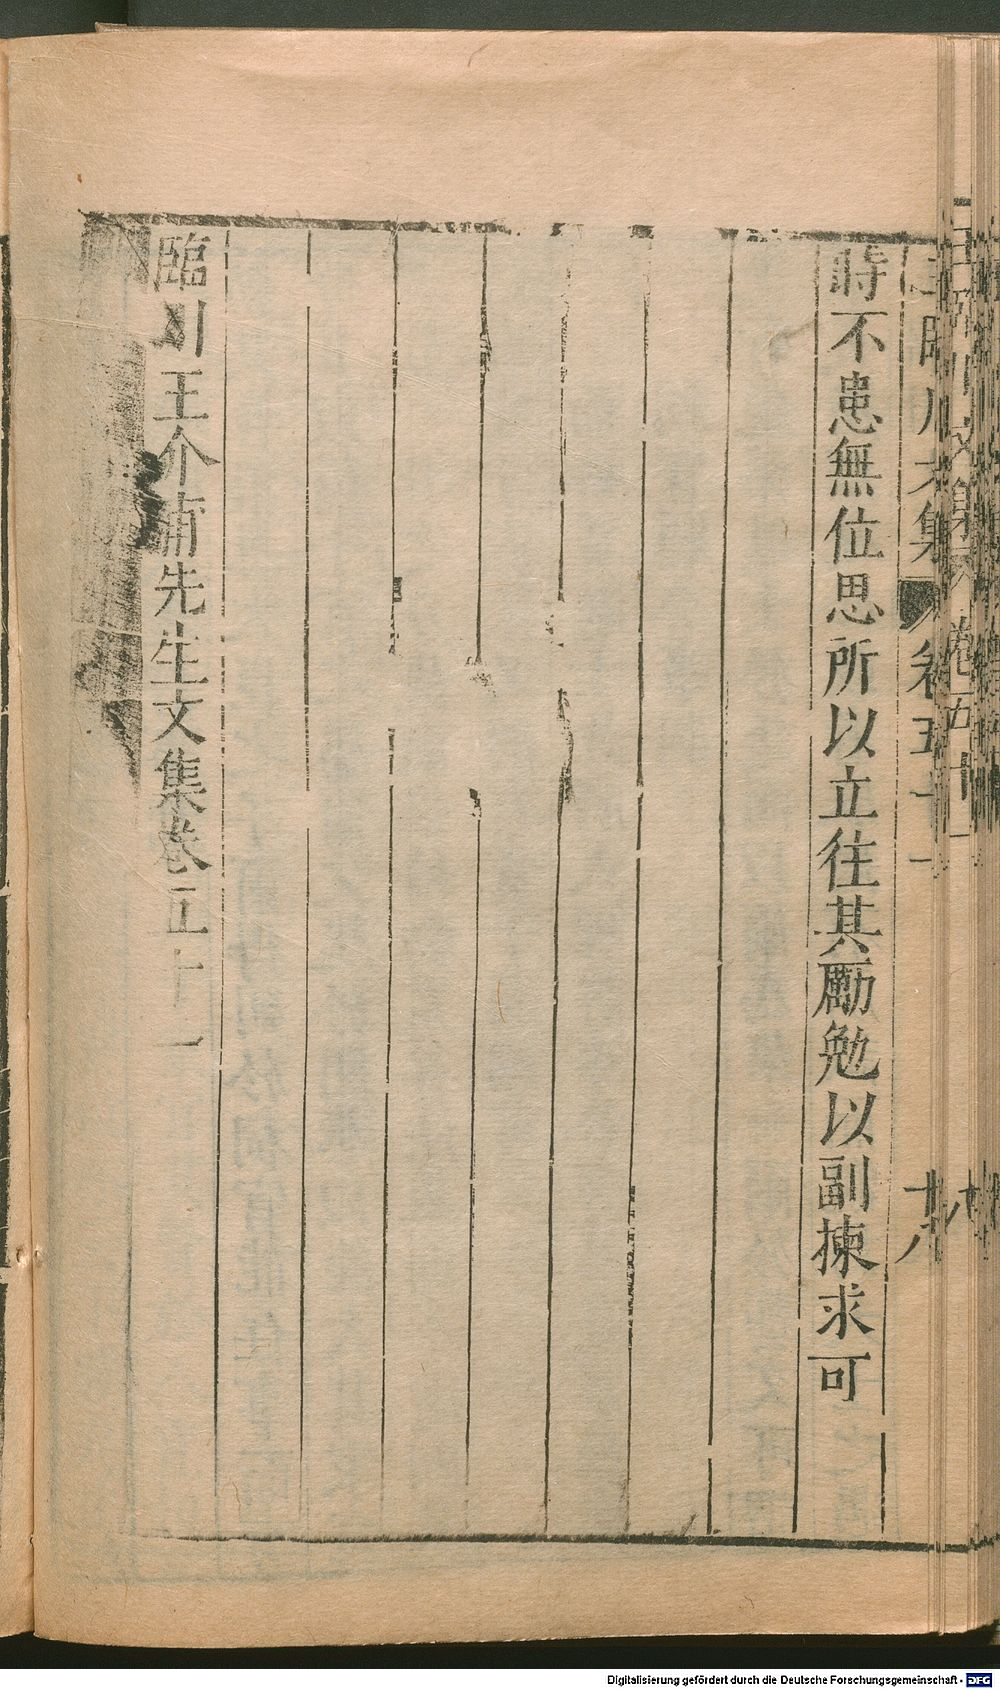 王臨川文集 卷五十一 十八
時不患無位思所以立往其勵勉以副揀求可
臨川王介甫先生文集卷五十一
Digitalisierung gefördert durch die Deutsche Forschungsgemeinschaft - DFG